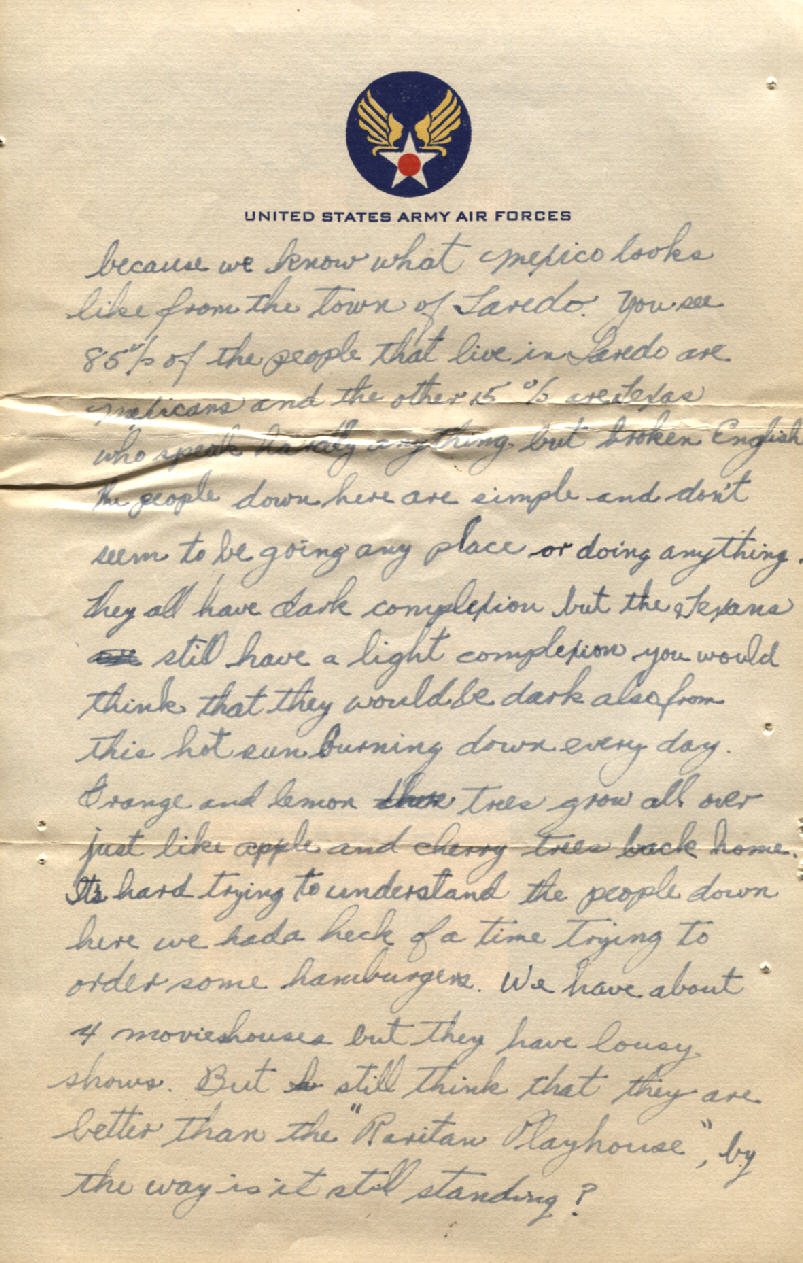 UNITED STATES ARMY AIR FORCES
because we know what Mexico looks
like from the town of Laredo. You see
85% of the people that live in Laredo are
Mexicans and the other 15% are Texas
who speak hardly anything but broken English
The people down here are simple and don't
seem to be going any place or doing anything.
They all have dark complexion but the Texans
still have a light complexion you would
think that they would be dark also from
this hot sun burning down every day.
Orange and lemon trees grow all over
just like apple and cherry trees back home.
It's hard trying to understand the people down
here we had a heck of a time trying to
order some hamburgers. We have about
4 movie houses but they have lousy
shows. But I still think that they are
better than the "Raritan Playhouse", by
the way is it still standing?